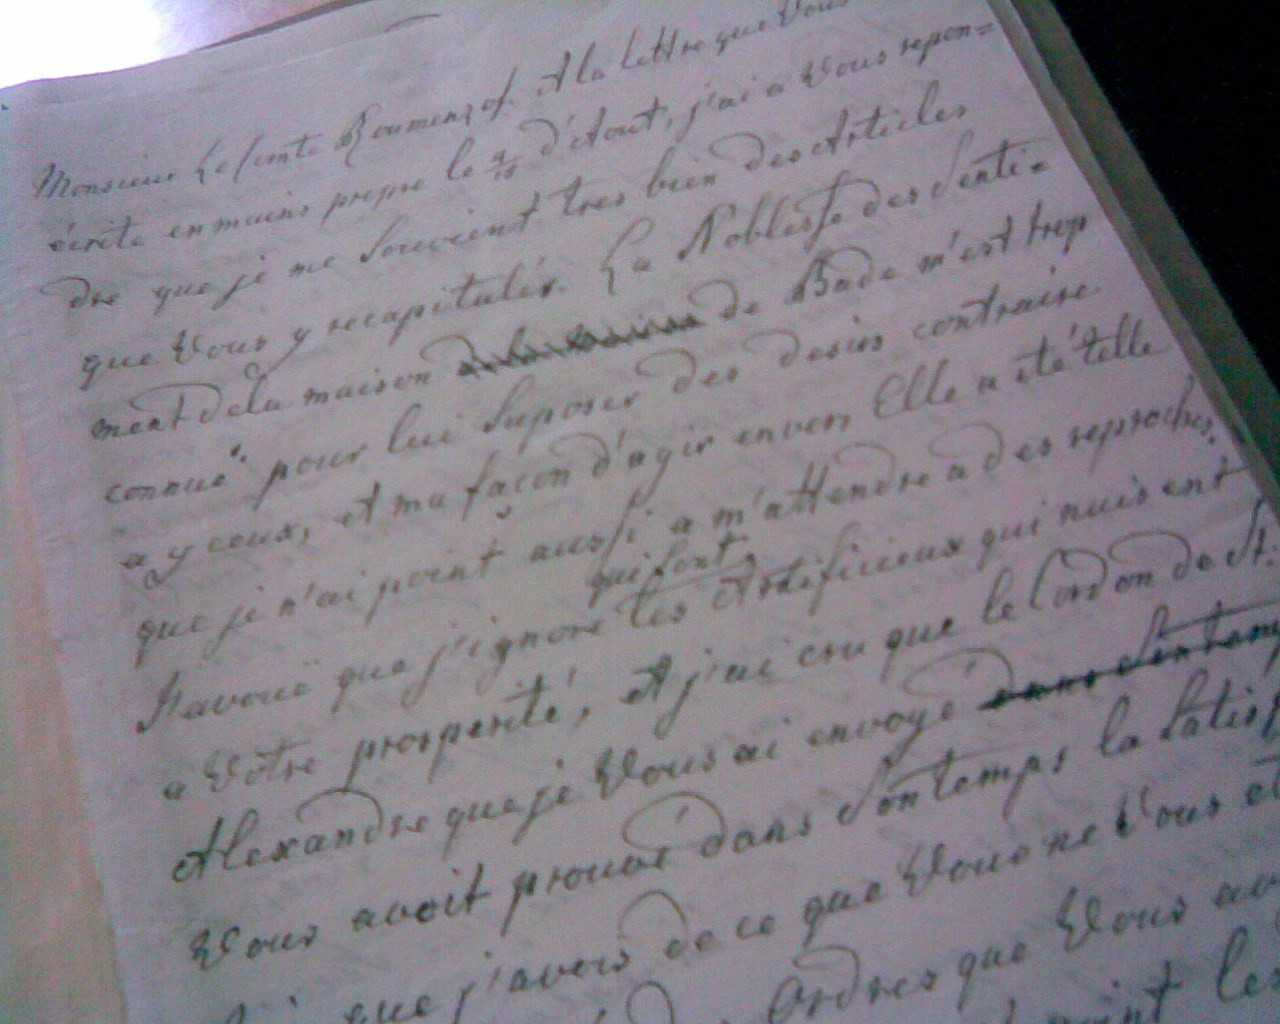 Monsieur Le Comte Roumenzof. A la lettre que Vous
écrite en mains propre le 4/15 d'Aout, j'ai a Vous repon=
dre que je me souvient tres bien des Articles
que Vous y recapitulér. La Noblesse des Senti=
ment dela maison de Bade m'est trop
connuë pour lui Suposer des desirs contraire
a yceux, et ma façon d'agir envers Elle a été telle
que je n'ai point aussi a m'attendre a des reproches.
J'avouë que j'ignore qui sont les Artificieux qui nuisent
a Votre prosperité, et j'ai cru que le Cordon de St:
Alexandre que je Vous ai envoyé dans Son temp
Vous avoit prouvé dans Son temps la Satisf
que j'avois de ce que Vous ne Vous et
Ordres que Vous av
point les